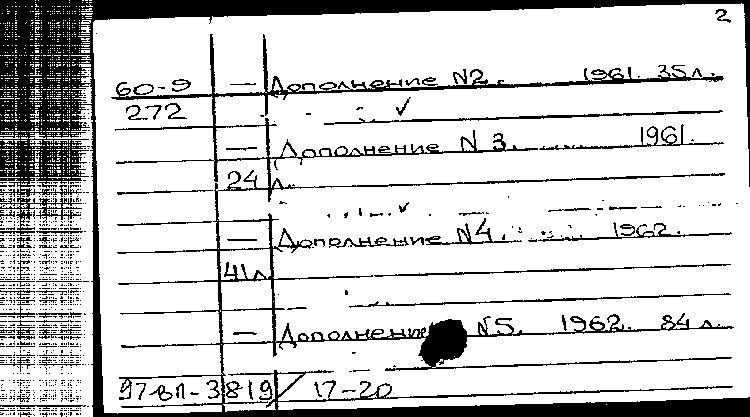 2
60-9 — Дополнение N2. 1961. 35л.
272 ✓
— Дополнение N 3. 1961.
24 л.
✓
— Дополнение N4. 1962.
41л
— Дополнение N5. 1962. 84 л.
97-вл-3819/17-20